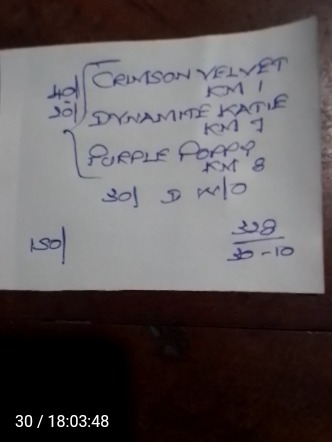 40/
30/
CRIMSON VELVET
KM 1
DYNAMITE KATIE
KM 7
PURPLE POPPY
KM 8
30/ D W/O
150/
328
30-10
30 / 18:03:48